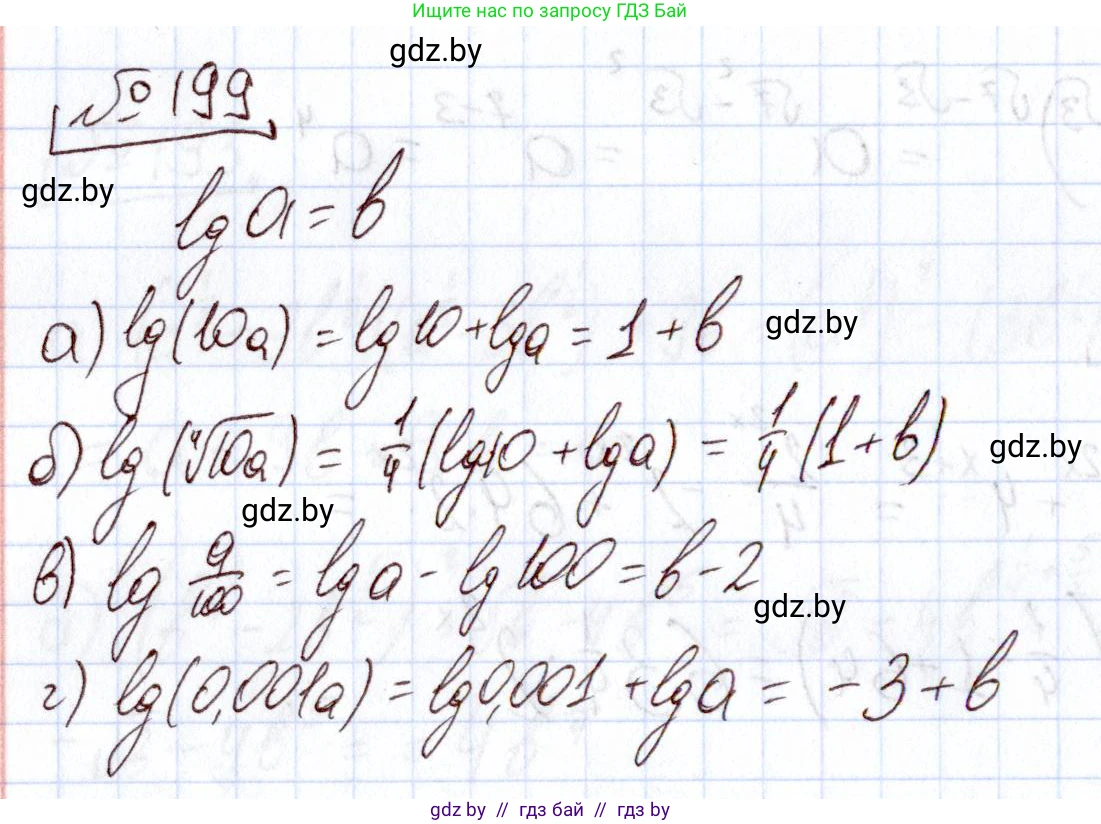 Ищите нас по запросу ГДЗ Бай
gdz.by
№199
gdz.by
lg a = b
а) lg(10a) = lg 10 + lg a = 1 + b gdz.by
б) lg(⁴√10a) = 1/4 (lg 10 + lg a) = 1/4 (1 + b) gdz.by
gdz.by
в) lg a/100 = lg a - lg 100 = b - 2
gdz.by
г) lg(0,001a) = lg 0,001 + lg a = -3 + b
gdz.by // гдз бай // гдз by